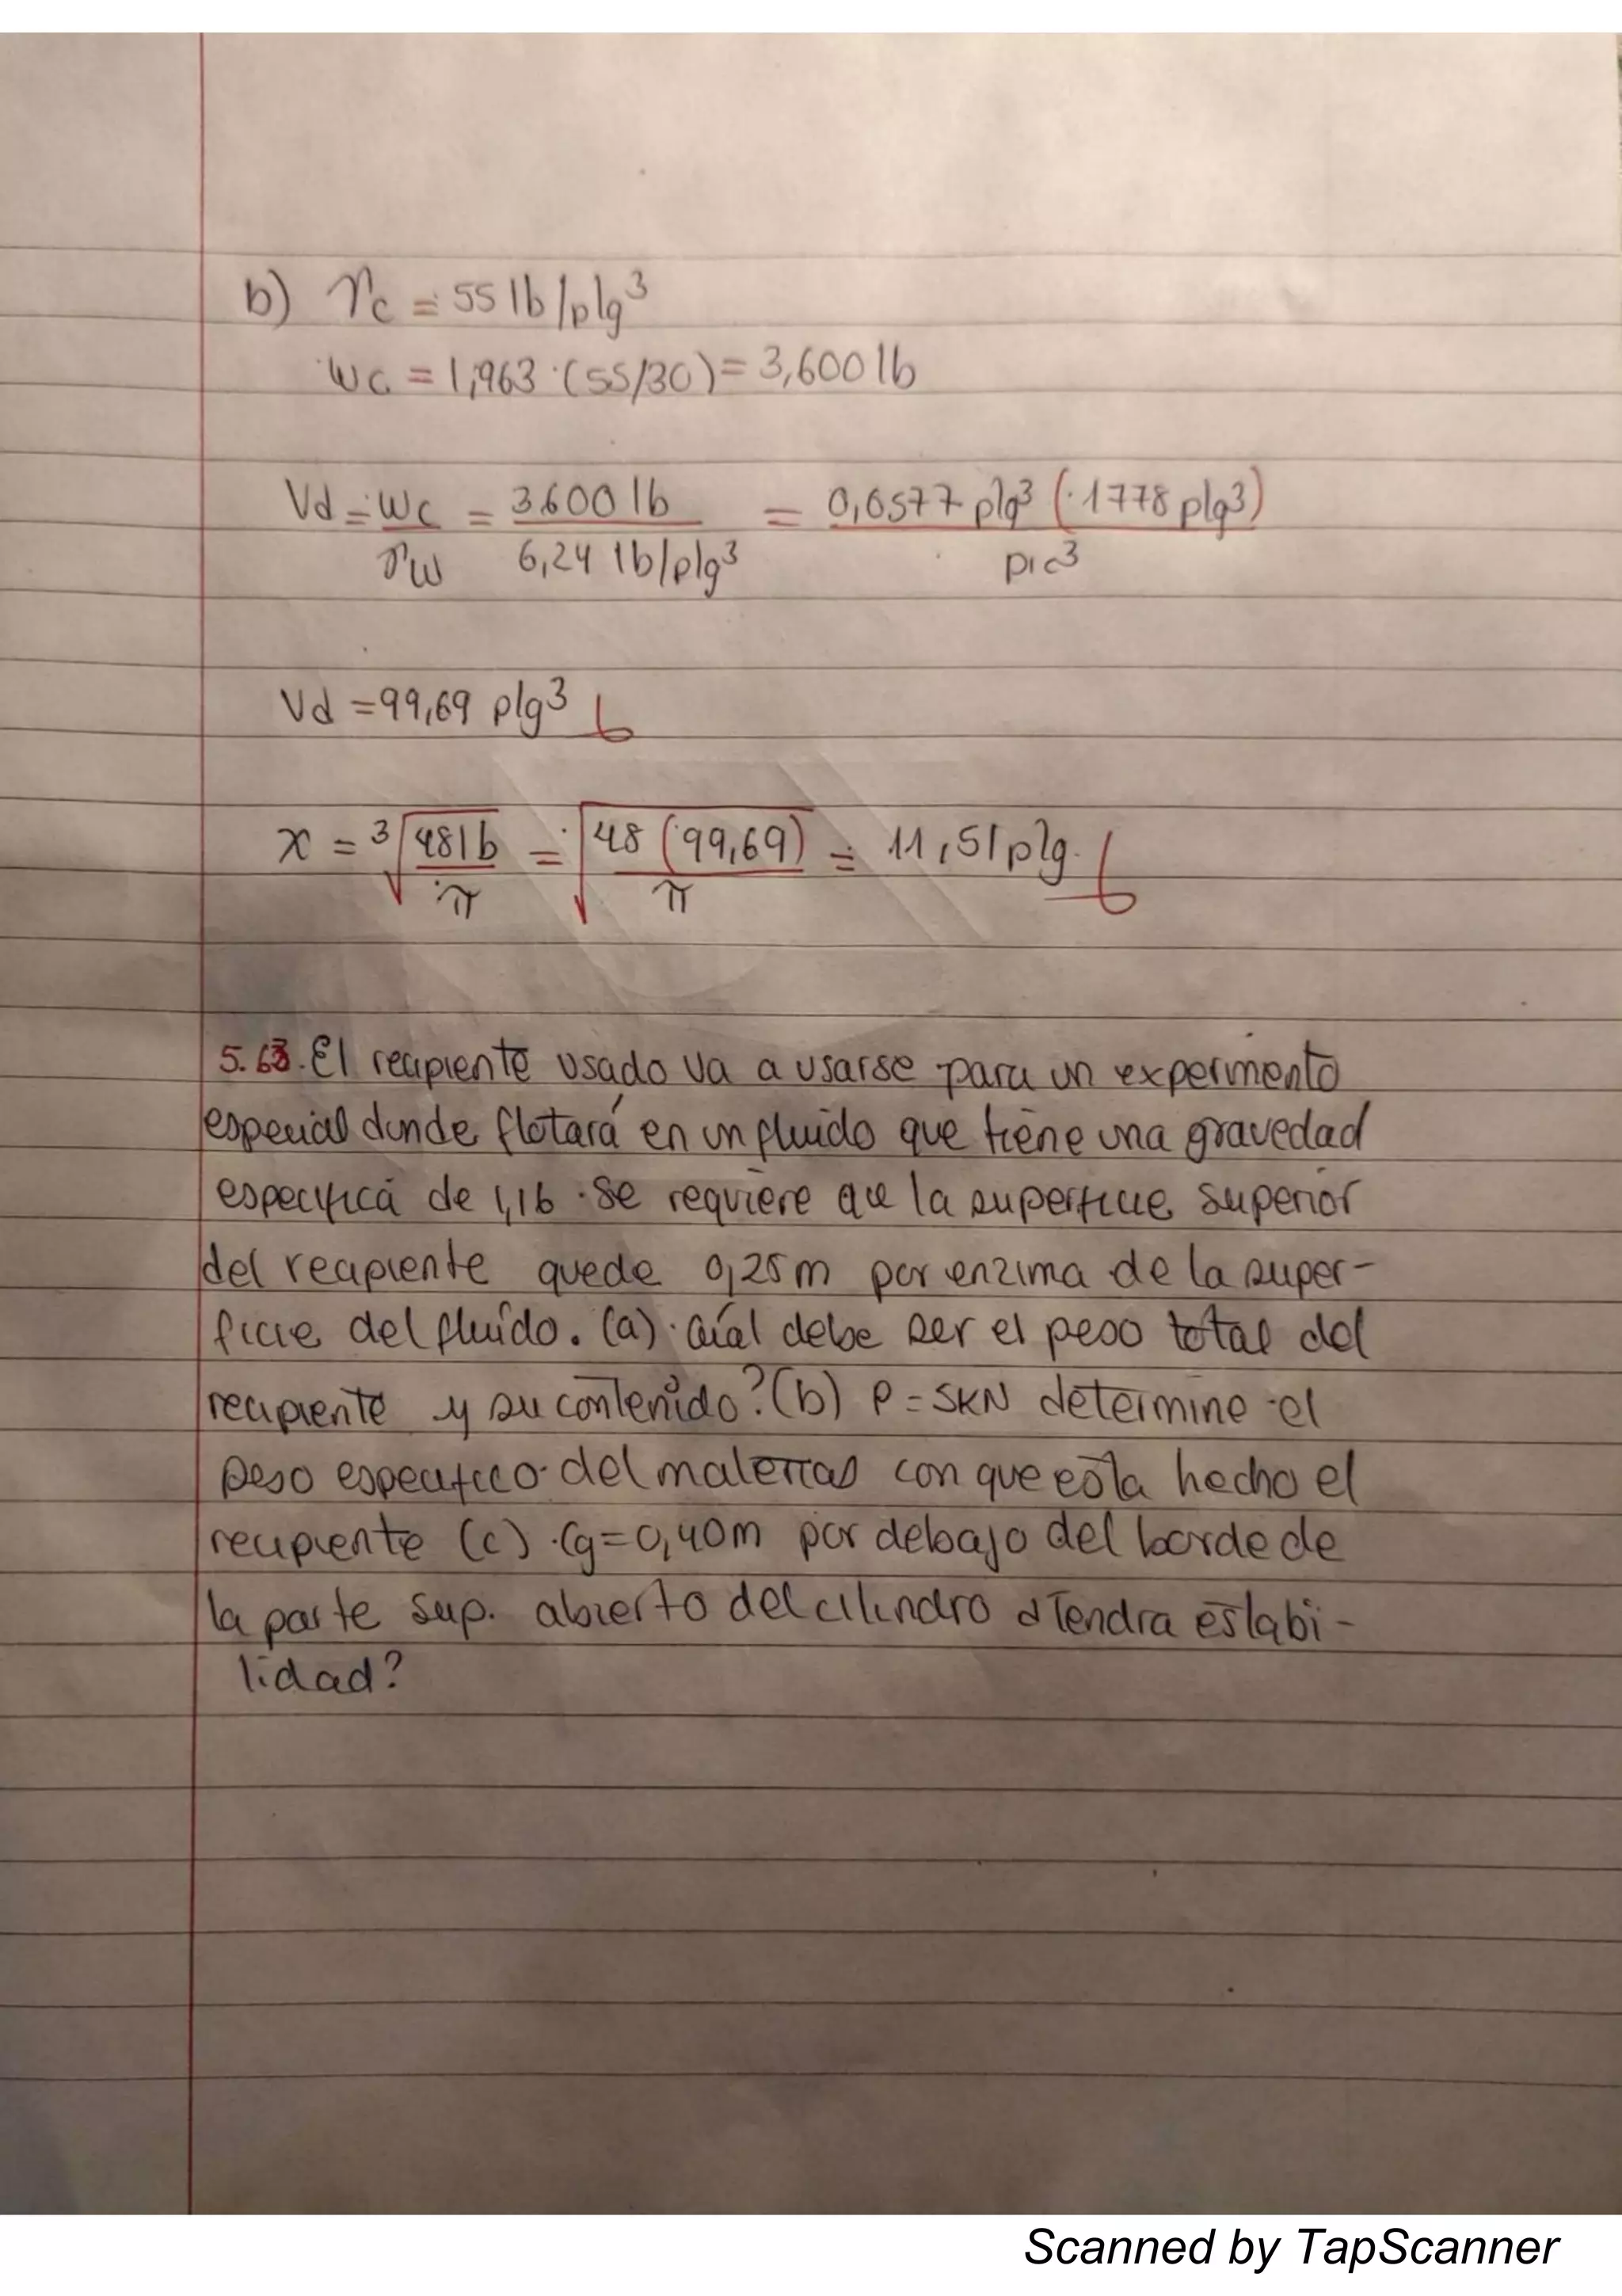 b) γc = 55 lb/plg³
wc = 1,963 · (55/30) = 3,600 lb
Vd = wc/γw = 3.600 lb / 6,24 lb/plg³ = 0,0577 plg³ (1778 plg³) / pie³
Vd = 99,69 plg³
x = ³√(481b/π) = √(48 (99,69)/π) = 11,51 plg.
5.63. El recipiente usado va a usarse para un experimento
especial donde flotará en un fluido que tiene una gravedad
especifica de 1,16 . Se requiere que la superficie superior
del recipiente quede 0,25m por enzima de la super-
ficie del fluido. (a) cuál debe ser el peso total del
recipiente y su contenido? (b) P = 5KN determine el
peso especifico del materias con que esta hecho el
recipiente (c) . Cg = 0,40m por debajo del borde de
la parte sup. abierto del cilindro ¿Tendra estabi-
lidad?
Scanned by TapScanner